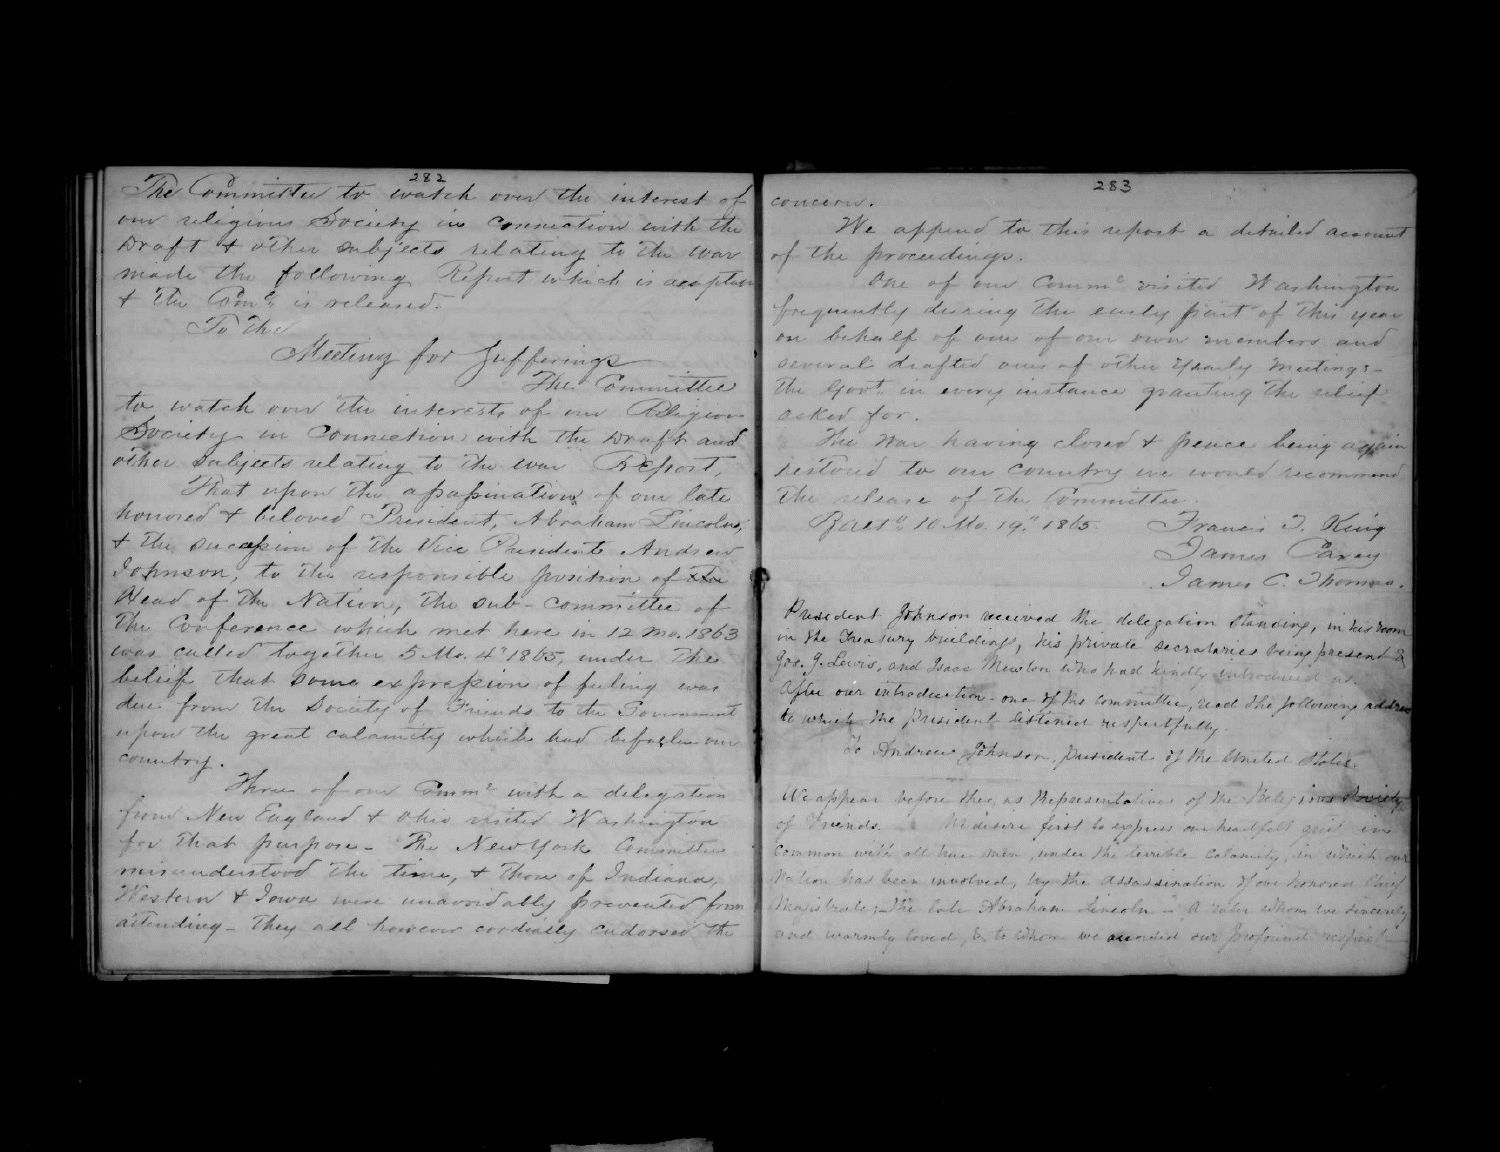 282
The Committee to watch over the interest of
our religious Society in Connection with the
Draft & other subjects relating to the war
made the following Report which is
& the Comᵉ is released.
To the
Meeting for Sufferings
The Committee
to watch over the interests of our Religious
Society in Connection with the Draft and
other subjects relating to the war Report,
That upon the assassination of our late
honored & beloved President, Abraham Lincoln,
& the succession of the Vice President Andrew
Johnson, to the responsible position of the
Head of the Nation, the sub-committee of
the Conference which met here in 12 mo. 1863
was called together 5 Mo. 4" 1865, under the
belief that some expression of feeling was
due from the Society of Friends to the Government
upon the great calamity which had befallen our
country.
Three of our Commᵉ with a delegation
from New England & Ohio visited Washington
for that purpose - The New York Committee
misunderstood the time, & those of Indiana,
Western & Iowa were unavoidably prevented from
attending - they all however cordially endorsed the
283
concern.
We append to this report a detailed account
of the proceedings.
One of our Commᵉ visited Washington
frequently during the early part of this year
on behalf of one of our own members and
several drafted ones of other Yearly Meetings -
the Govt. in every instance granting the relief
asked for.
The war having closed & peace being again
restored to our country we would recommend
the release of the Committee.
Balto. 10 Mo. 19" 1865. Francis T. King
James Carey
James C. Thomas.
President Johnson received the delegation standing, in his room
in the Treasury building, his private secretaries being present &
Jos. J. Lewis, and Isaac Newton who had kindly introduced us.
After our introduction - one of the committee, read the following address
to which the President listened respectfully.
To Andrew Johnson, President of the United States.
We appear before thee, as Representatives of the Religious Society
of Friends. We desire first to express our heartfelt grief in
common with all true men, under the terrible calamity, in which our
Nation has been involved, by the assassination of our honored Chief
Magistrate; the late Abraham Lincoln - A ruler whom we sincerely
and warmly loved, & to whom we accorded our profound respect -